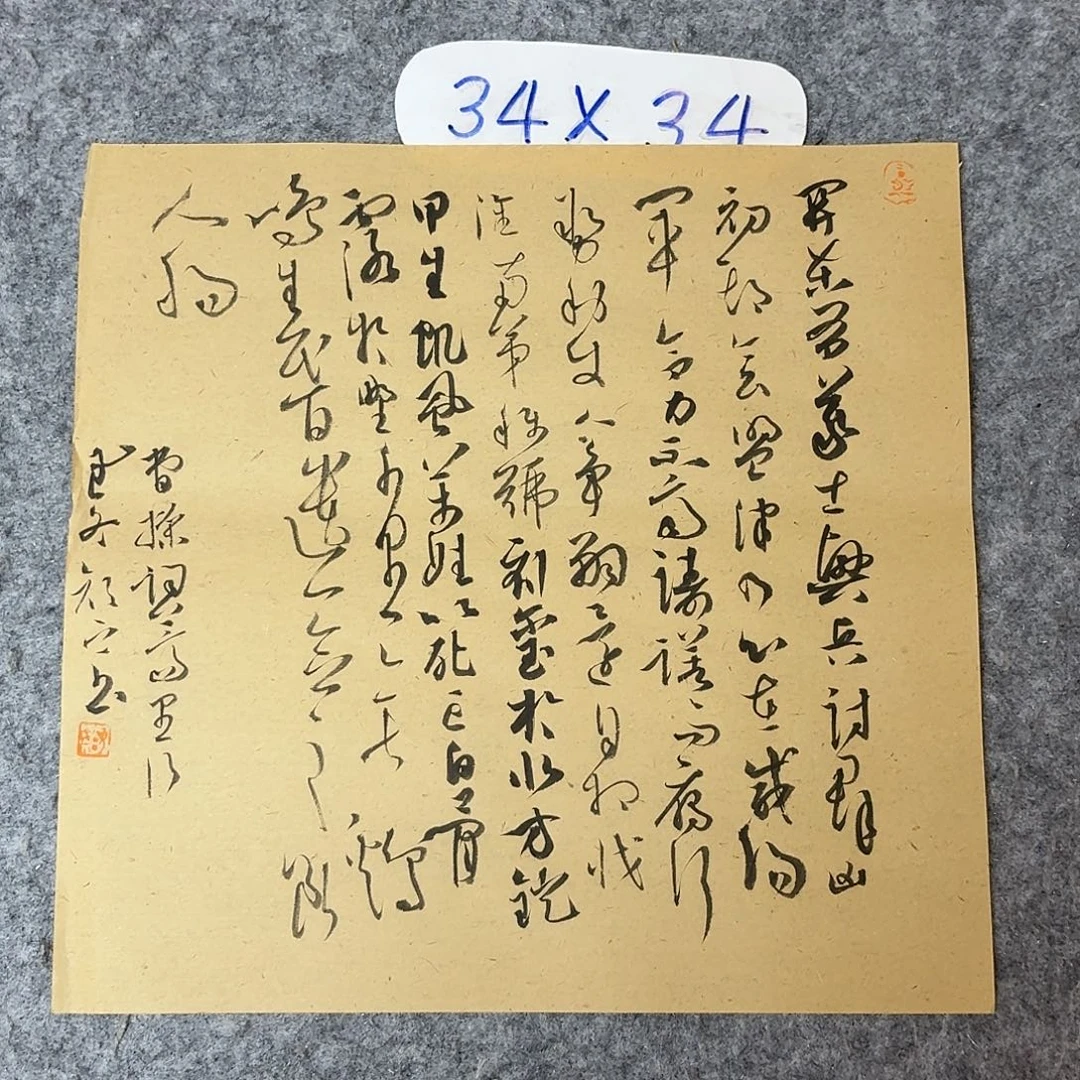 34×34
關東有義士興兵討群凶
初期會盟津乃心在咸陽
軍合力不齊躊躇而雁行
勢利使人爭嗣還自相戕
淮南弟稱號刻璽於北方鎧
甲生虮虱萬姓以死亡白骨
露於野千里無雞
鳴生民百遺一念之斷
人腸
曹操蒿里行
書